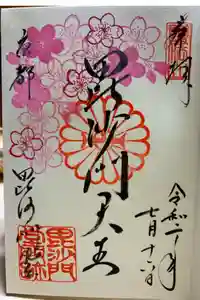 奉拝
令和二年
七月十六日
毘沙門天王
京都
毘沙門堂門跡